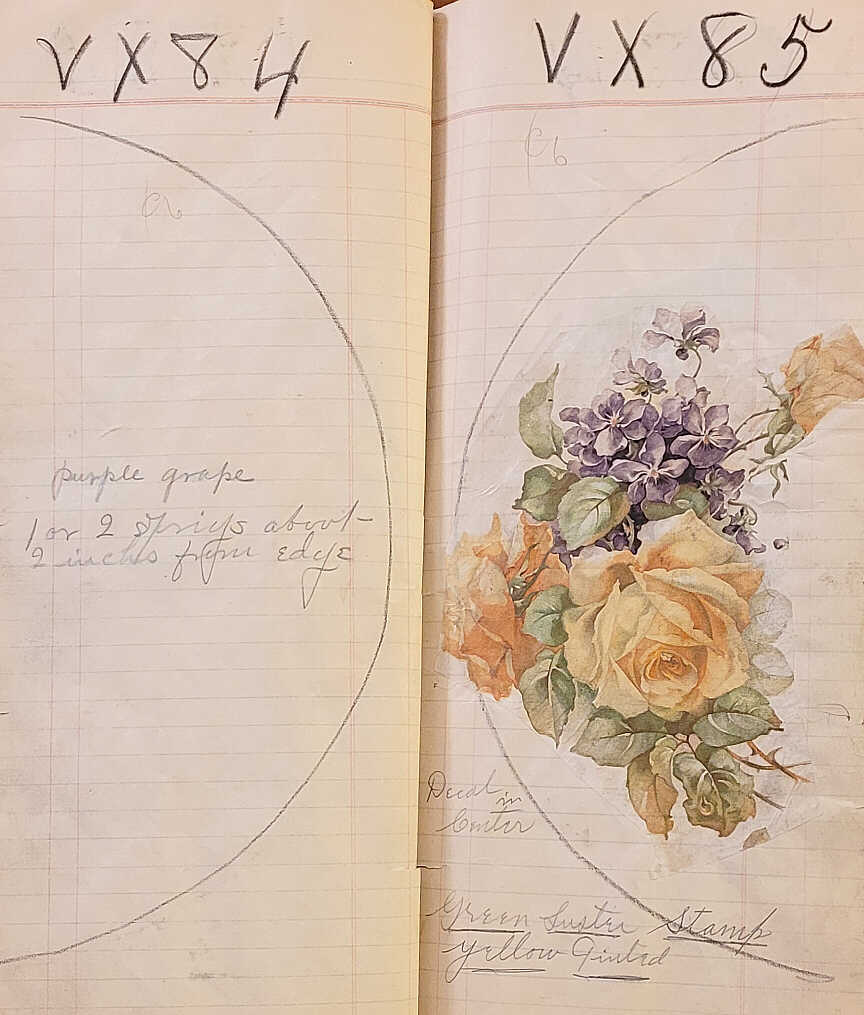 VX84
purple grape
1 or 2 sprigs about
2 inches from edge
VX85
Decal
in
Center
Green Luster Stamp
Yellow Tinted